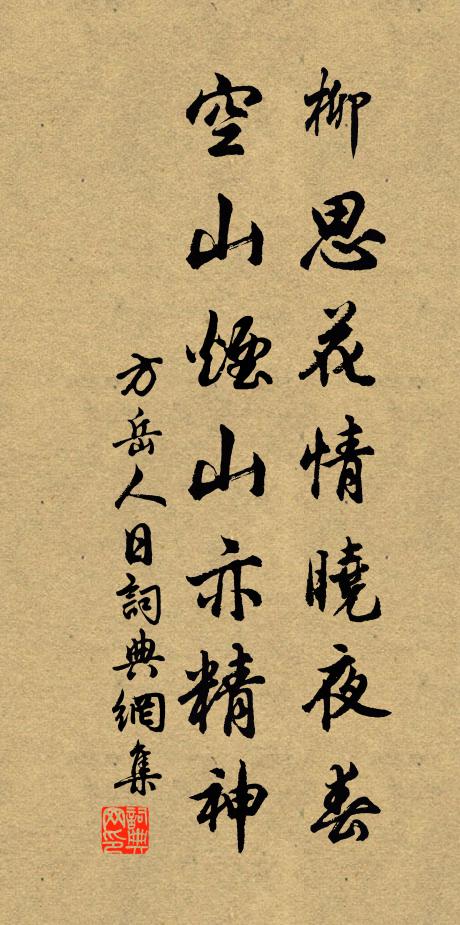 柳思花情曉夜春
空山煙山亦精神
方岳人日詞典網集
詞典
网印